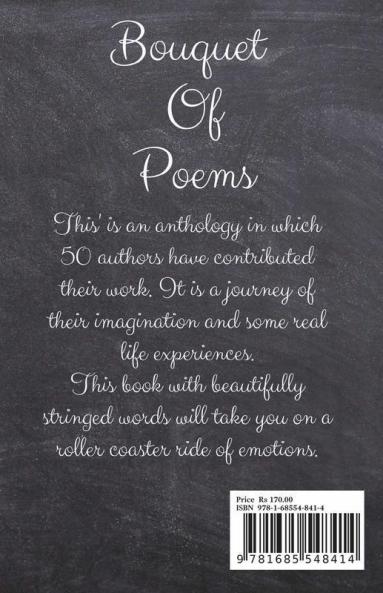 Bouquet
Of
Poems
This' is an anthology in which
50 authors have contributed
their work. It is a journey of
their imagination and some real
life experiences.
This book with beautifully
stringed words will take you on a
roller coaster ride of emotions.
Price Rs 170.00
ISBN 978-1-68554-841-4
9 781685 548414